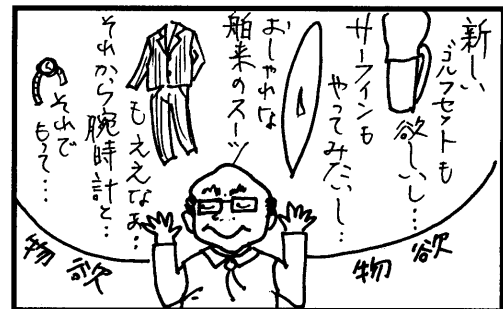 新しい
ゴルフセットも
欲しいし…
サーフィンも
やってみたいし…
おしゃれな
舶来のスーツ
もええなぁ…
それから腕時計と…
それで
もって…
物欲
物欲